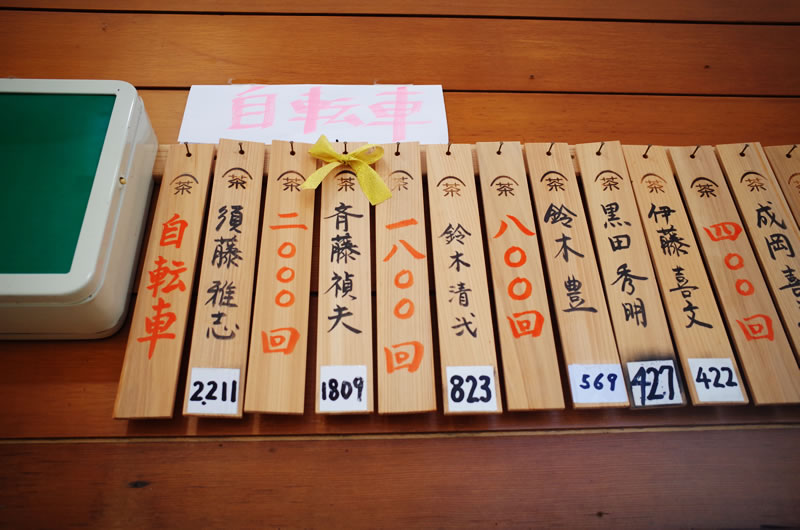 自転車
茶
自転車
茶
須藤雅志
2211
茶
二〇〇〇回
茶
斉藤禎夫
1809
茶
一八〇〇回
茶
鈴木清弐
823
茶
八〇〇回
茶
鈴木豊
569
茶
黒田秀明
427
茶
伊藤喜文
422
茶
四〇〇回
茶
成岡喜